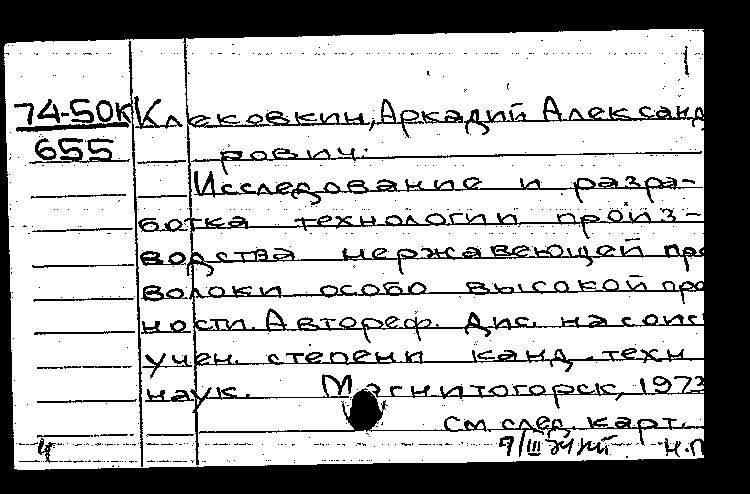 74-50К Клековкин, Аркадий Александ
655 рович.
Исследование и разра-
ботка технологии произ-
водства нержавеющей про
волоки особо высокой про
ности. Автореф. Дис. на соис
учен. степени канд. техн
наук. Магнитогорск, 1973
см. след. карт.
4 9/III Н.П